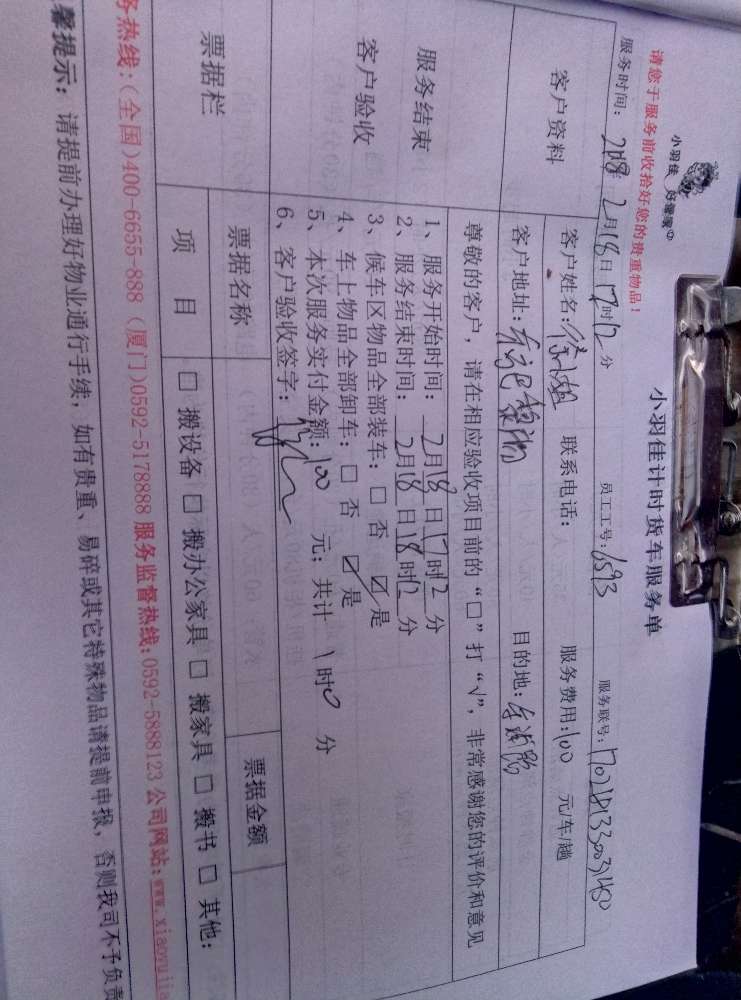 小羽佳 好管家
小羽佳计时货车服务单
请您于服务前收拾好您的贵重物品!
服务时间: 2018 2月18日17时12分 员工工号: 6593 服务联号:
客户资料
客户姓名: 徐小姐 联系电话: 服务费用: 100 元/车/趟
客户地址: 目的地:
服务结束
客户验收
尊敬的客户, 请在相应验收项目前的“□”打“√”, 非常感谢您的评价和意见
1、服务开始时间: 2月18日17时12分
2、服务结束时间: 2月18日18时12分
3、候车区物品全部装车: □ 否 ☑ 是
4、车上物品全部卸车: □ 否 ☑ 是
5、本次服务实付金额: 100 元; 共计 1 时0 分
6、客户验收签字:
票据栏
票据名称 票据金额
项 目 □ 搬设备 □ 搬办公家具 □ 搬家具 □ 搬书 □ 其他:
务热线:(全国)400-6655-888 (厦门)0592-5178888 服务监督热线:0592-5888123 公司网站:www.xiaoyujia
馨提示: 请提前办理好物业通行手续, 如有贵重、易碎或其它特殊物品请提前申报, 否则我司不予负责